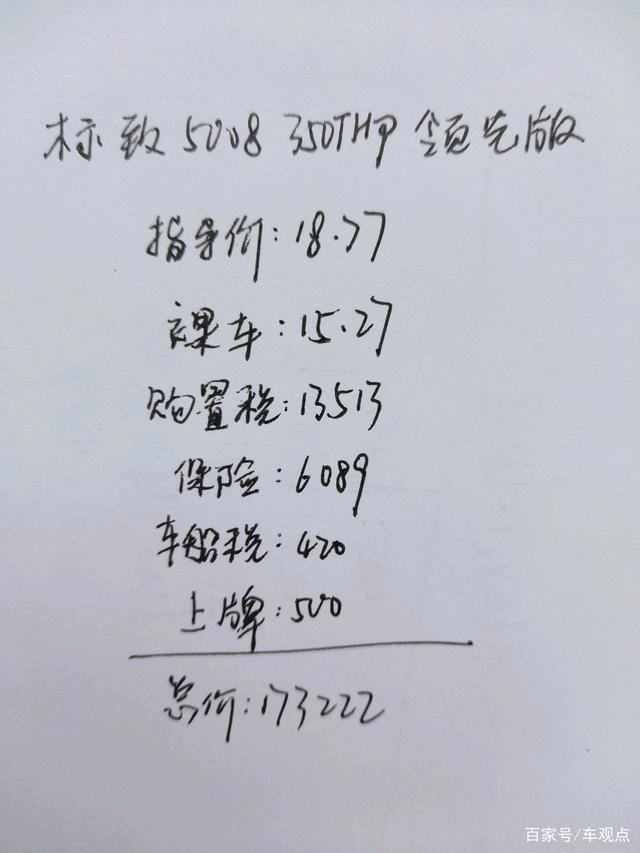 标致 5008 350THP 领先版
指导价:18.77
裸车:15.27
购置税:13513
保险:6089
车船税:420
上牌:500
总价:173222
百家号/车观点